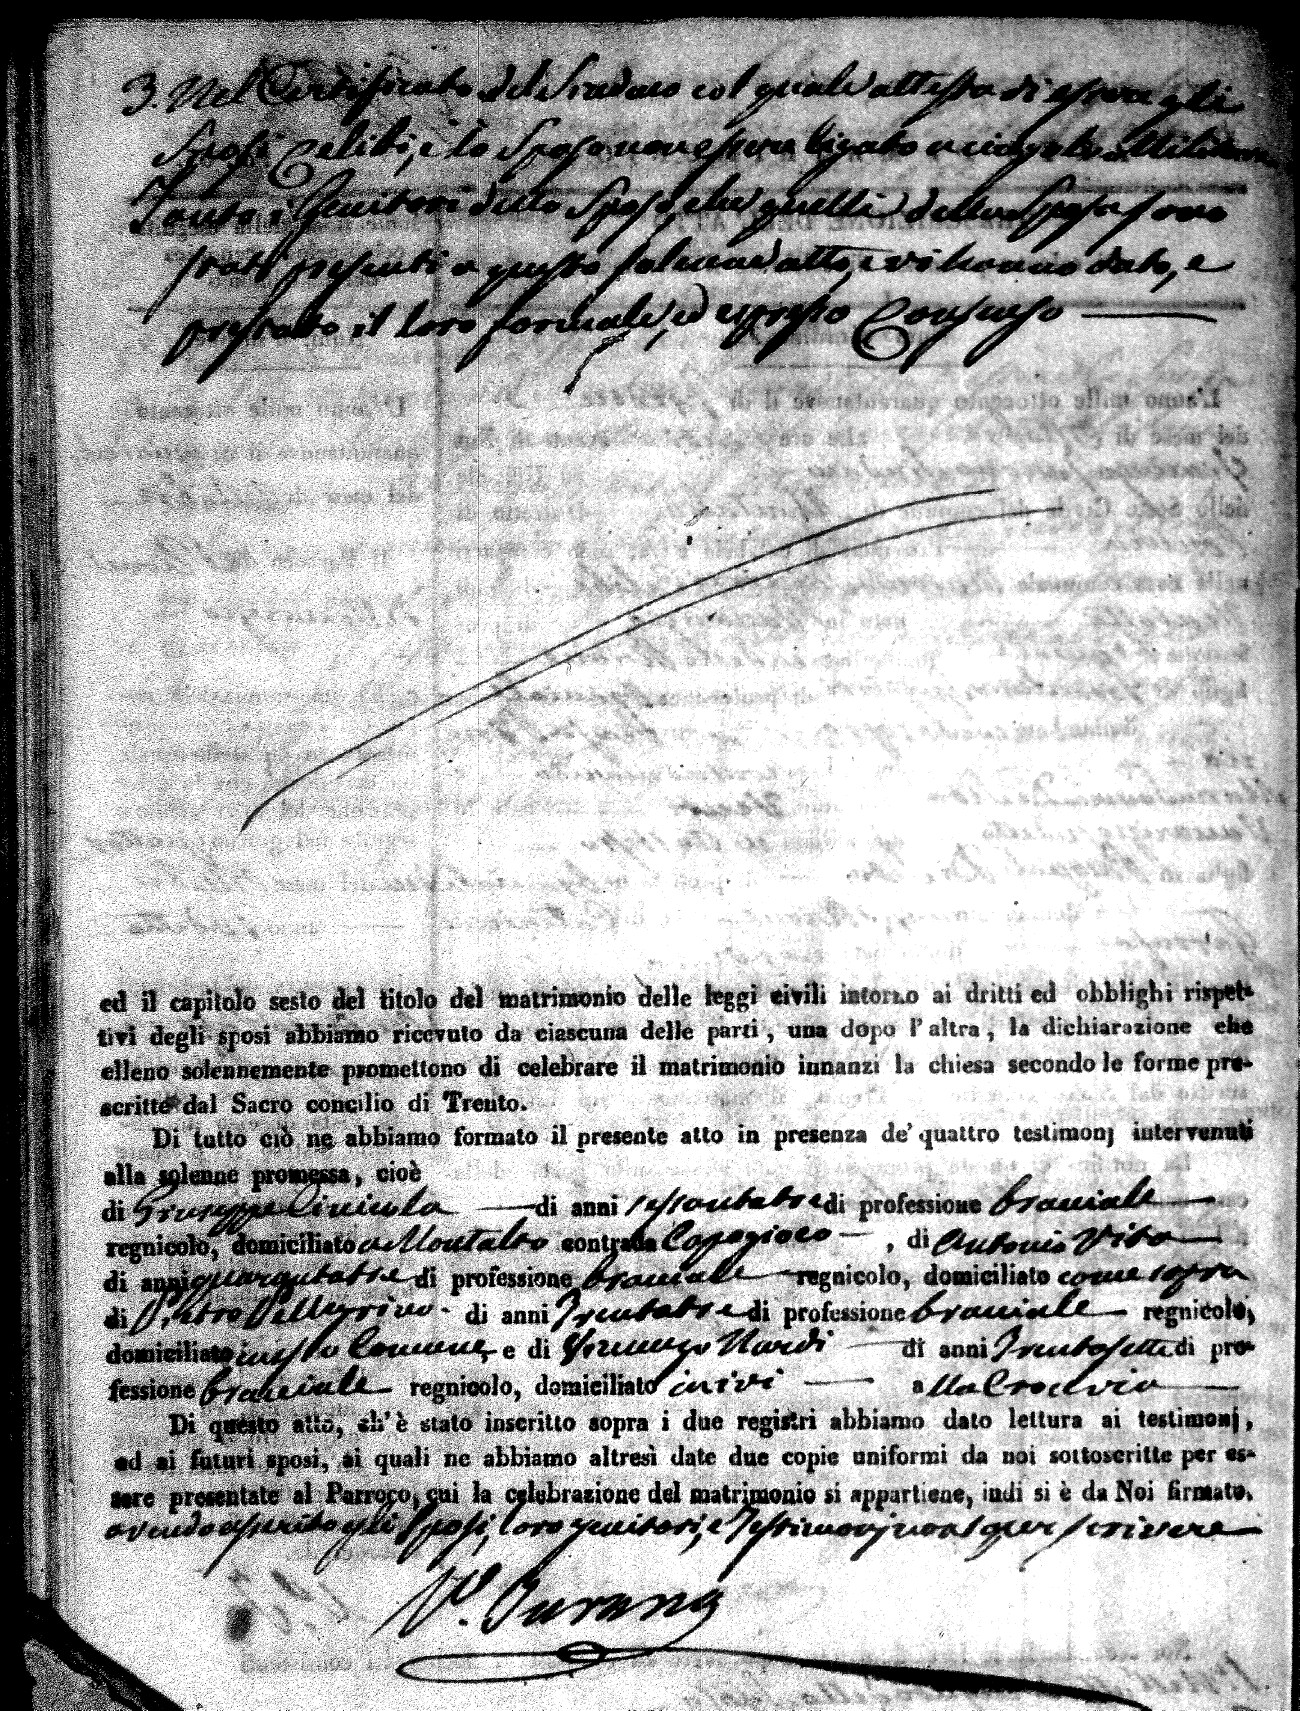 3. Nel Certificato del Sindaco col quale attesta di essere gli
Sposi Celibi, e lo Sposo non essere ligato a vincolo Militare
Tanto i Genitori dello Sposo che quelli della Sposa sono
stati presenti a questo solenne atto, e vi hanno dato, e
prestato il loro formale, ed espresso Consenso
ed il capitolo sesto del titolo del matrimonio delle leggi civili intorno ai dritti ed obblighi rispet-
tivi degli sposi abbiamo ricevuto da ciascuna delle parti, una dopo l'altra, la dichiarazione che
elleno solennemente promettono di celebrare il matrimonio innanzi la chiesa secondo le forme pre-
scritte dal Sacro concilio di Trento.
Di tutto ciò ne abbiamo formato il presente atto in presenza de' quattro testimonj intervenuti
alla solenne promessa, cioè
di Giuseppe di anni sessantatre di professione bracciale
regnicolo, domiciliato a Montalto contrada , di Antonio Vito
di anni quarantatre di professione bracciale regnicolo, domiciliato come sopra
di Pietro Pellegrino di anni Trentatre di professione bracciale regnicolo,
domiciliato in questo Comune, e di Vincenzo Nardi di anni Trentasette di pro-
fessione bracciale regnicolo, domiciliato in ivi alla Crocevia
Di questo atto, ch'è stato inscritto sopra i due registri abbiamo dato lettura ai testimonj,
ed ai futuri sposi, ai quali ne abbiamo altresì date due copie uniformi da noi sottoscritte per es-
sere presentate al Parroco, cui la celebrazione del matrimonio si appartiene, indi si è da Noi firmato.
avendo asserito gli Sposi, loro genitori, e Testimonj non saper scrivere